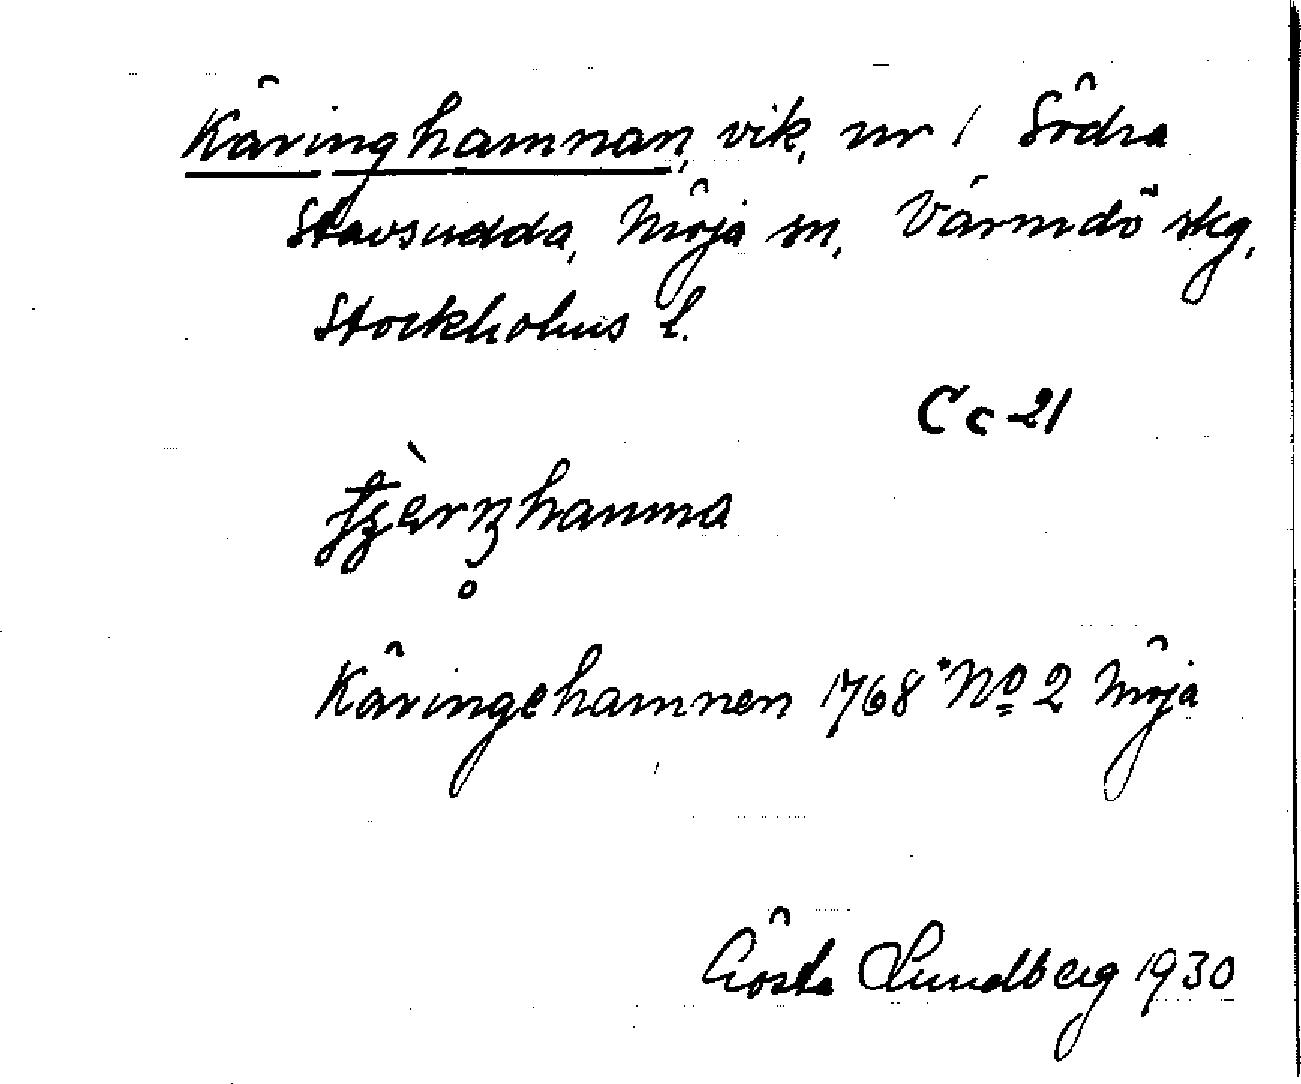 Käringhamnan, vik, nr 1 Södra
Stavsudda, Möja sn, Värmdö skg,
Stockholms l.
Cc 21
Käringehamnen 1768 No 2 Möja
Gösta Lundberg 1930